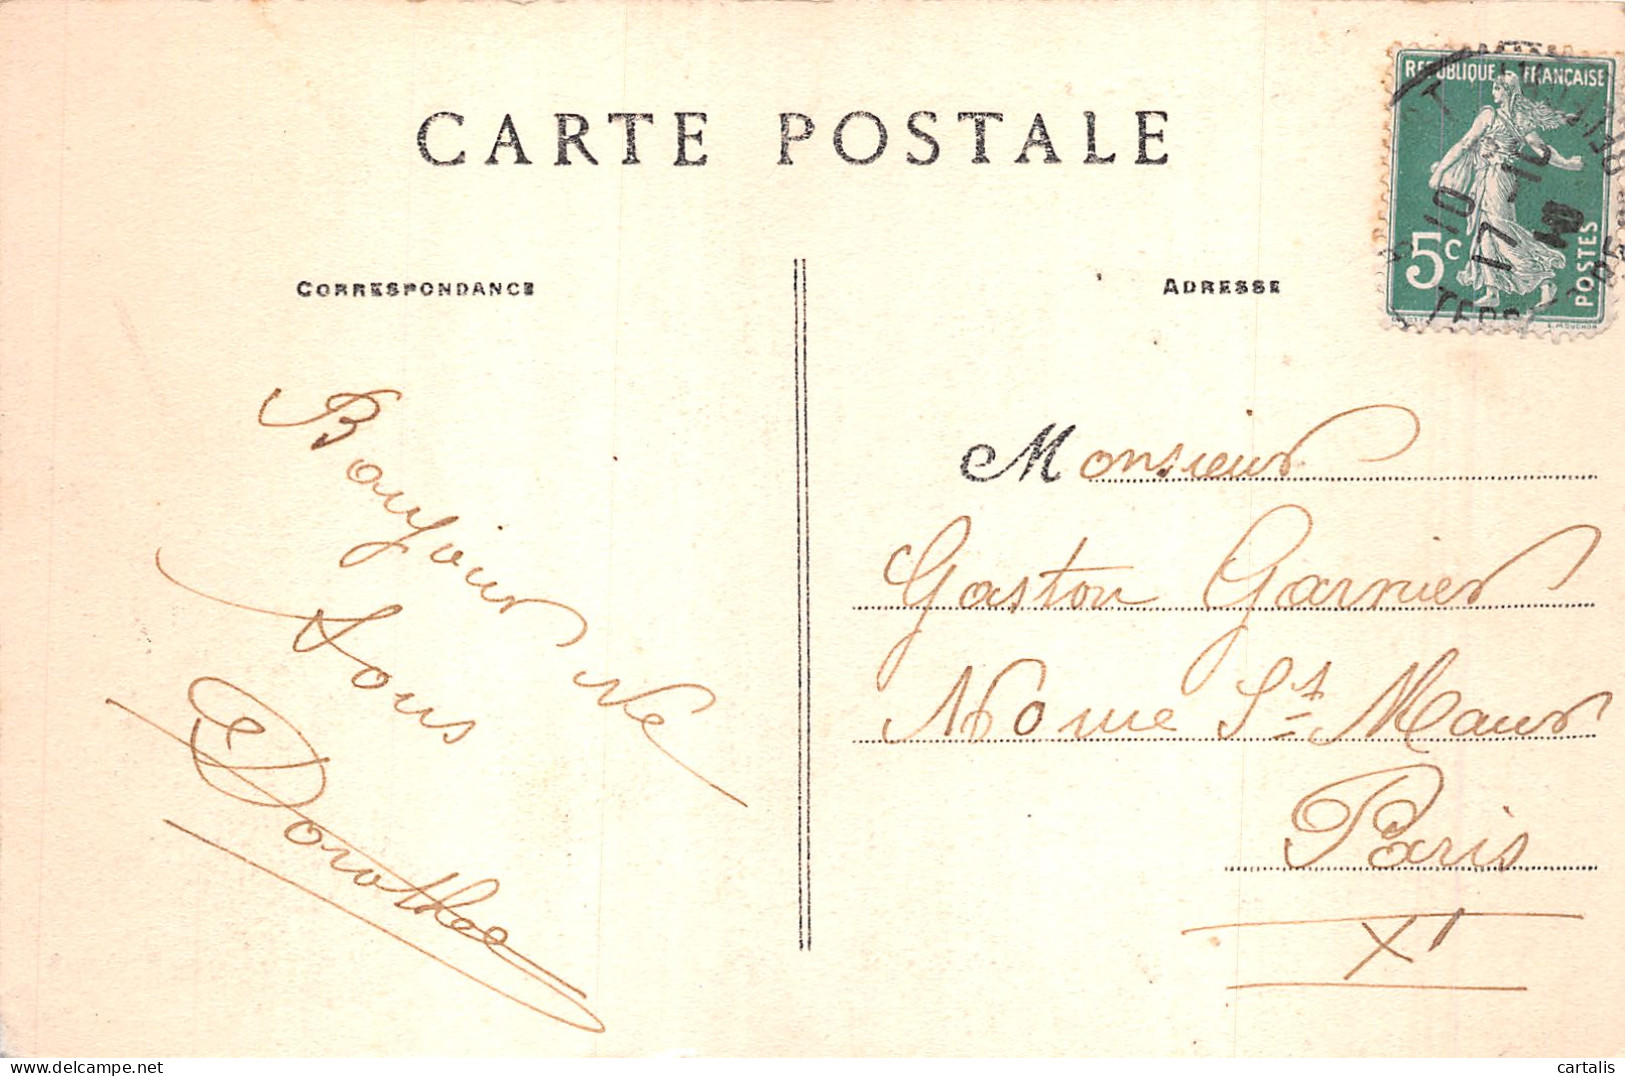 CARTE POSTALE
CORRESPONDANCE
ADRESSE
REPUBLIQUE FRANÇAISE
5c
POSTES
10
17 -10
Bonjour
tous
Dorothee
Monsieur
Gaston Garnier
St Maur
Paris
XI
cartalis
delcampe.net